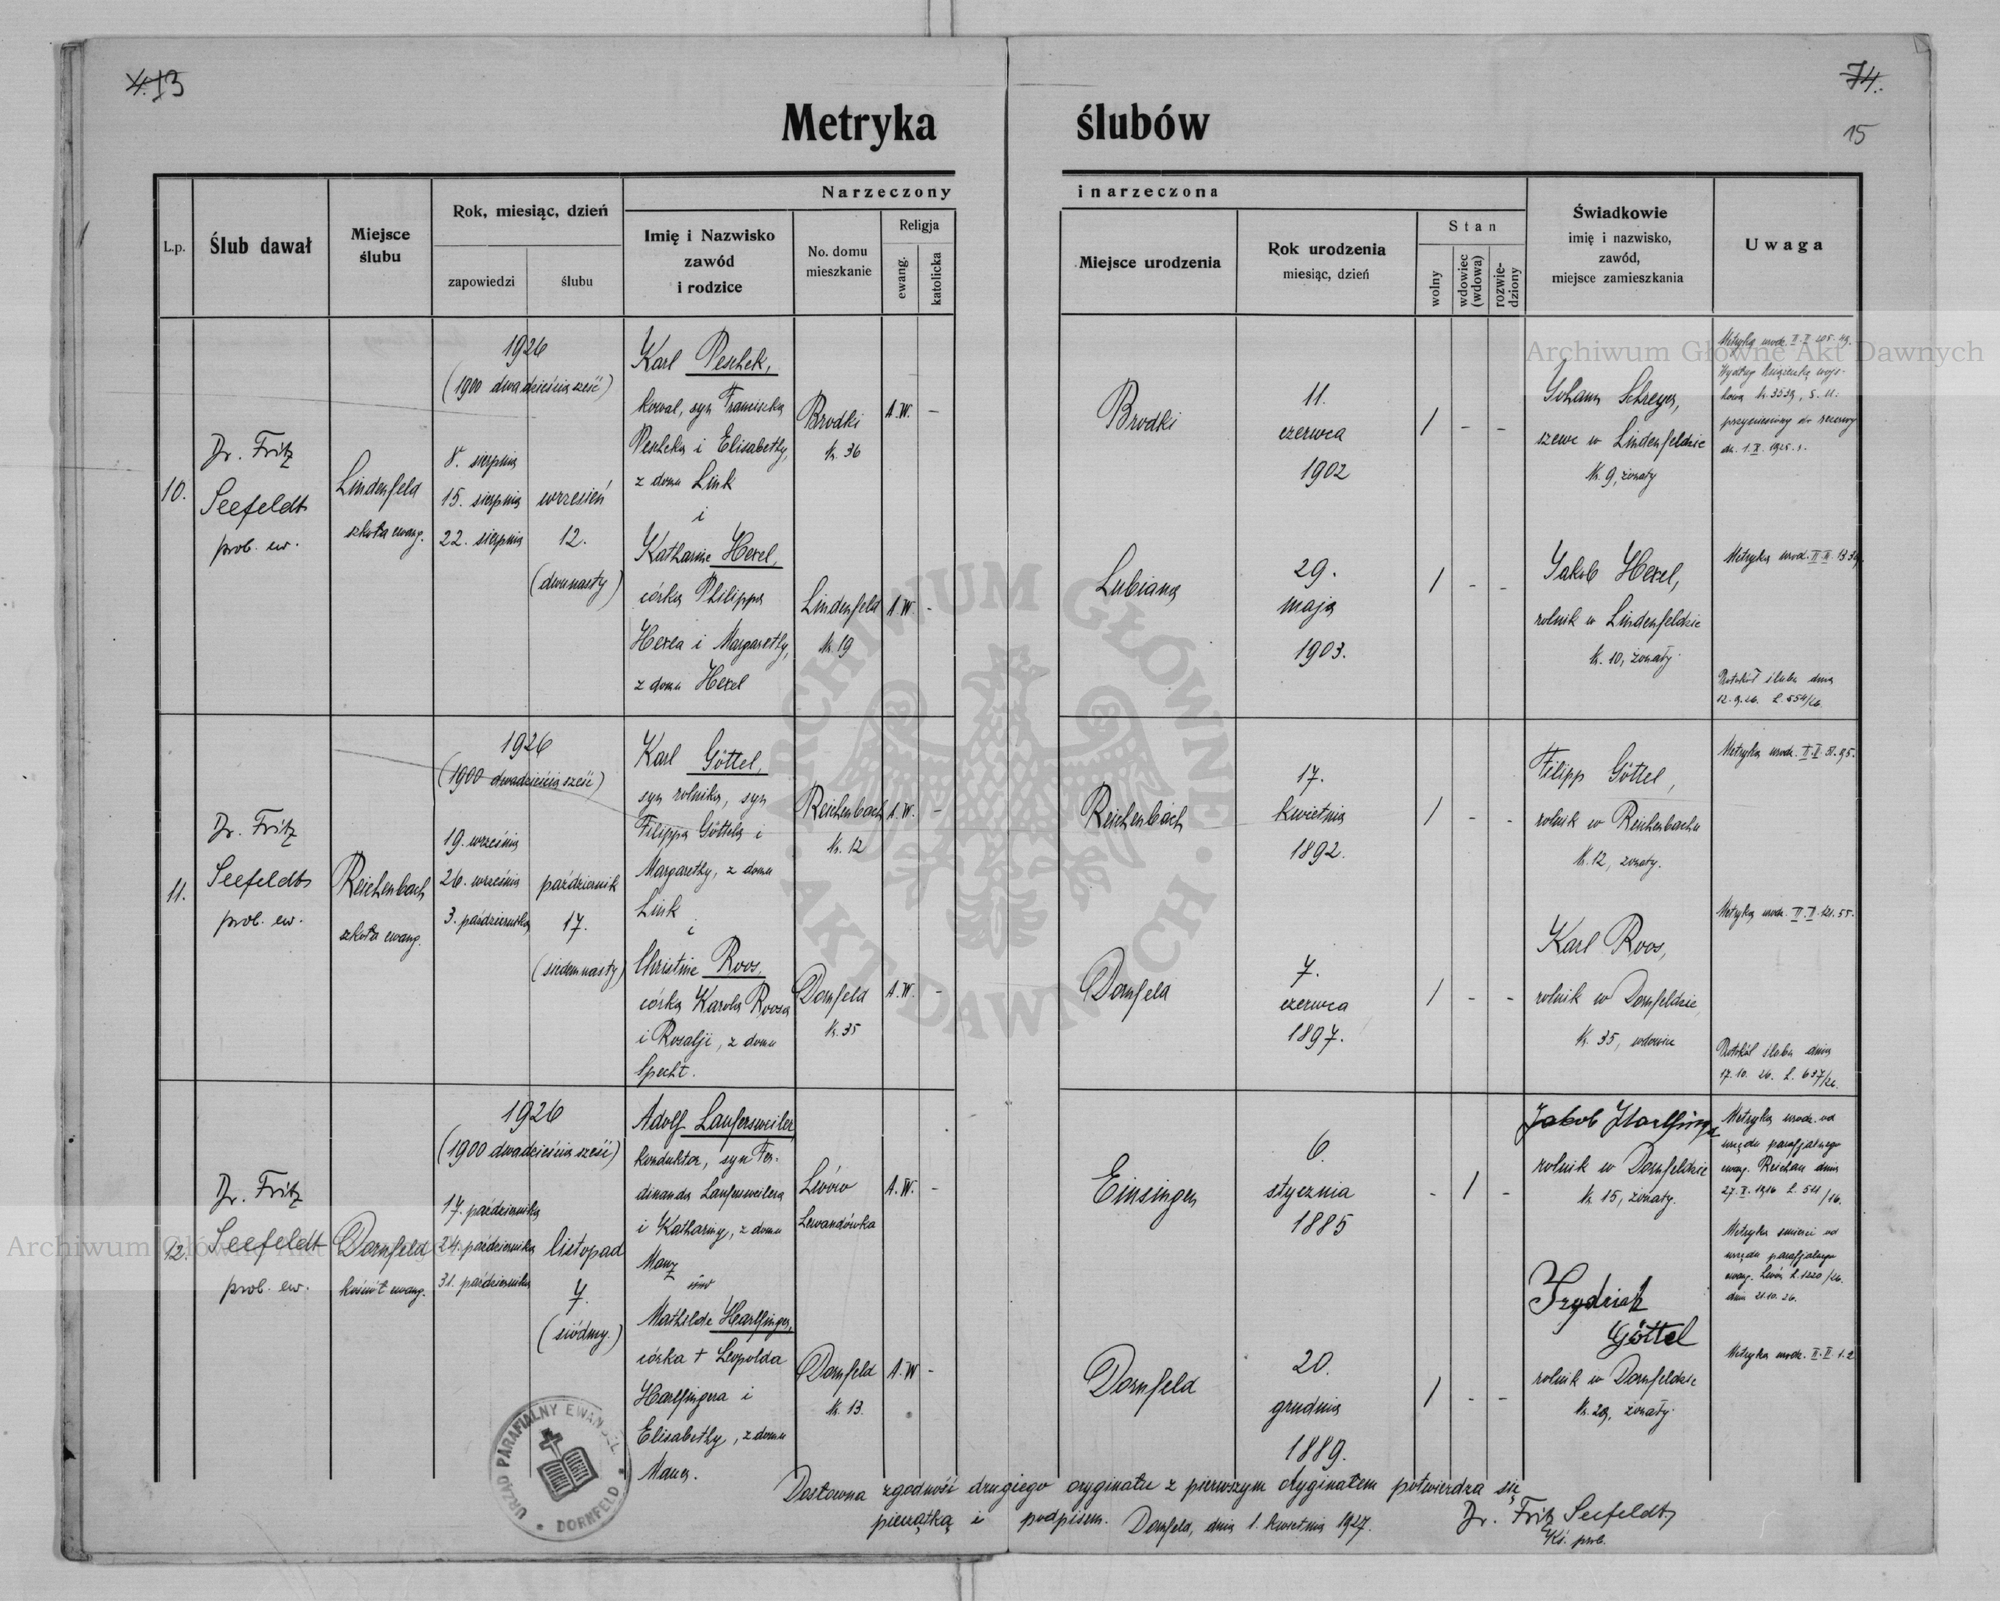 4. 13
74.
15
Metryka ślubów
L.p.
Ślub dawał
Miejsce
ślubu
Rok, miesiąc, dzień
zapowiedzi
ślubu
Narzeczony
i narzeczona
Imię i Nazwisko
zawód
i rodzice
No. domu
mieszkanie
Religja
ewang.
katolicka
Miejsce urodzenia
Rok urodzenia
miesiąc, dzień
Stan
wolny
wdowiec
(wdowa)
rozwie-
dziony
Świadkowie
imię i nazwisko,
zawód,
miejsce zamieszkania
Uwaga
10.
Dr. Fritz
Seefeldt
prob. ew.
Lindenfeld
szkoła ewang.
1926
(1900 dwadzieścia sześć)
8. sierpnia
15. sierpnia
22. sierpnia
wrzesień
12.
(dwunasty)
Karl Peschek,
kowal, syn Franciszka
Pescheka i Elisabethy,
z domu Link
i
Katharine Hexel,
córka Philippa
Hexla i Margarethy,
z domu Hexel
Brodki
Nr. 36
A.W. -
Lindenfeld
Nr. 19
A.W. -
Brodki
11.
czerwca
1902
/ - -
Lubiana
29.
maja
1903.
/ - -
Johann Schreyer,
szewc w Lindenfeldzie
Nr. 9, żonaty
Jakob Hexel,
rolnik w Lindenfeldzie
Nr. 10, żonaty.
Metryka urodz. II.
przeniesiony do rezerwy
Metryka urod. II.
Protokół ślubu dnia
12.9.26. L. 554/26.
11.
Dr. Fritz
Seefeldt
prob. ew.
Reichenbach
szkoła ewang.
1926
(1900 dwadzieścia sześć)
19. września
26. września
3. października
październik
17.
(siedemnasty)
Karl Göttel,
syn rolnika, syn
Filippa Göttela i
Margarethy, z domu
Link
i
Christine Roos,
córka Karola Roosa
i Rozalji, z domu
Specht.
Reichenbach
Nr. 12
A.W. -
Dornfeld
Nr. 35
A.W. -
Reichenbach
17.
kwietnia
1892.
/ - -
Dornfeld
7.
czerwca
1897.
/ - -
Filipp Göttel,
rolnik w Reichenbachu
Nr. 12, żonaty.
Karl Roos,
rolnik w Dornfeldzie,
Nr. 35, wdowiec
Metryka urodz. II. I. 51. 95.
Metryka urodz. II. I. 121. 55.
Protokół ślubu dnia
17. 10. 26. L. 637/26.
12.
Dr. Fritz
Seefeldt
prob. ew.
Dornfeld
kościół ewang.
1926
(1900 dwadzieścia sześć)
17. października
24. października
31. października
listopad
7.
(siódmy.)
Adolf Laufersweiler,
konduktor, syn Fer-
dinanda Laufersweilera
i Kathariny, z domu
Manz
und
Mathilde Harlfinger,
córka + Leopolda
Harlfingera i
Elisabethy, z domu
Manz.
Lwów
Lewandówka
A.W. -
Dornfeld
Nr. 13.
A.W -
Einsingen
6.
stycznia
1885
- / -
Dornfeld
20.
grudnia
1889.
/ - -
Jakob Harlfinger
rolnik w Dornfeldzie
Nr. 15, żonaty.
Frydrich
Göttel
rolnik w Dornfeldzie
Nr. 29, żonaty.
Metryka urodz. od
urzędu parafjalnego
ewang. Reichau dnia
Metryka śmierci od
urzędu parafjalnego
ewang. Lwów L. 1220/26.
dnia 21.10. 26.
Metryka urodz. II. II. 1. 2
Dosłowna zgodność drugiego oryginału z pierwszym oryginałem potwierdza się
pieczątką i podpisem. Dornfeld, dnia 1. kwietnia 1927.
Dr. Fritz Seefeldt
Ks. prob.
URZĄD PARAFIALNY EWANGEL. DORNFELD
Archiwum Główne Akt Dawnych
ARCHIWUM GŁÓWNE AKT DAWNYCH
Archiwum Główne Akt Dawnych